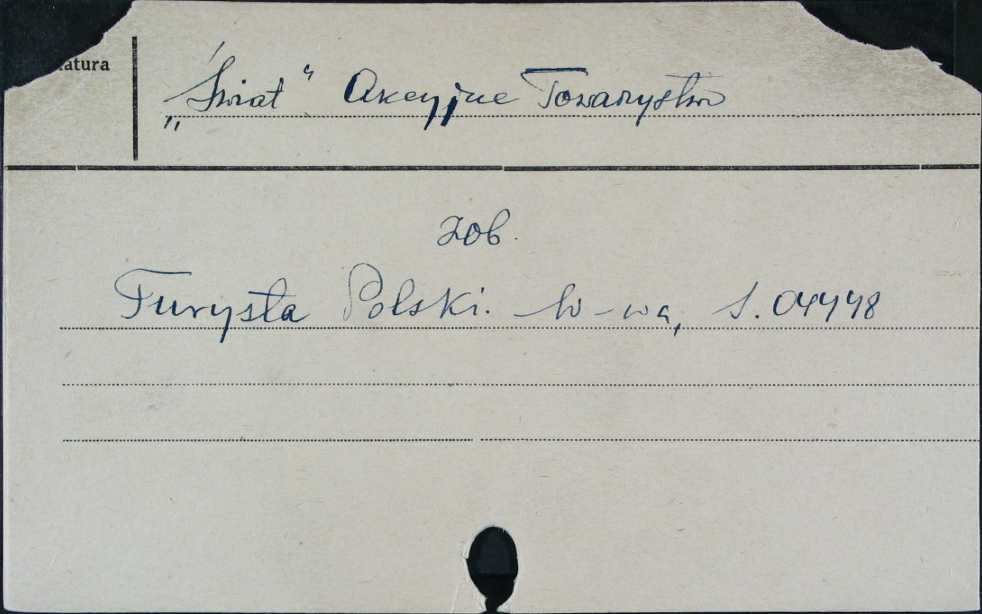 atura
„Świat" Akcyjne Towarzystwo
zob.
Turysta Polski. W-wa, S. 04448